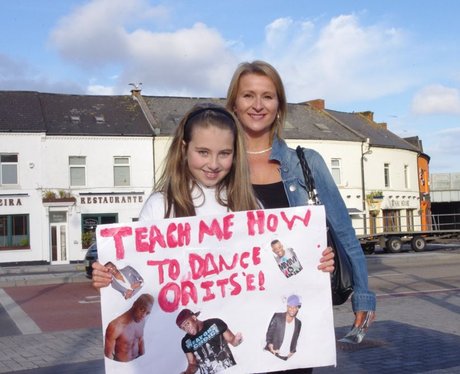 EIRA
RESTAURANTE
TEACH ME HOW
TO DANCE
ORITS'E!